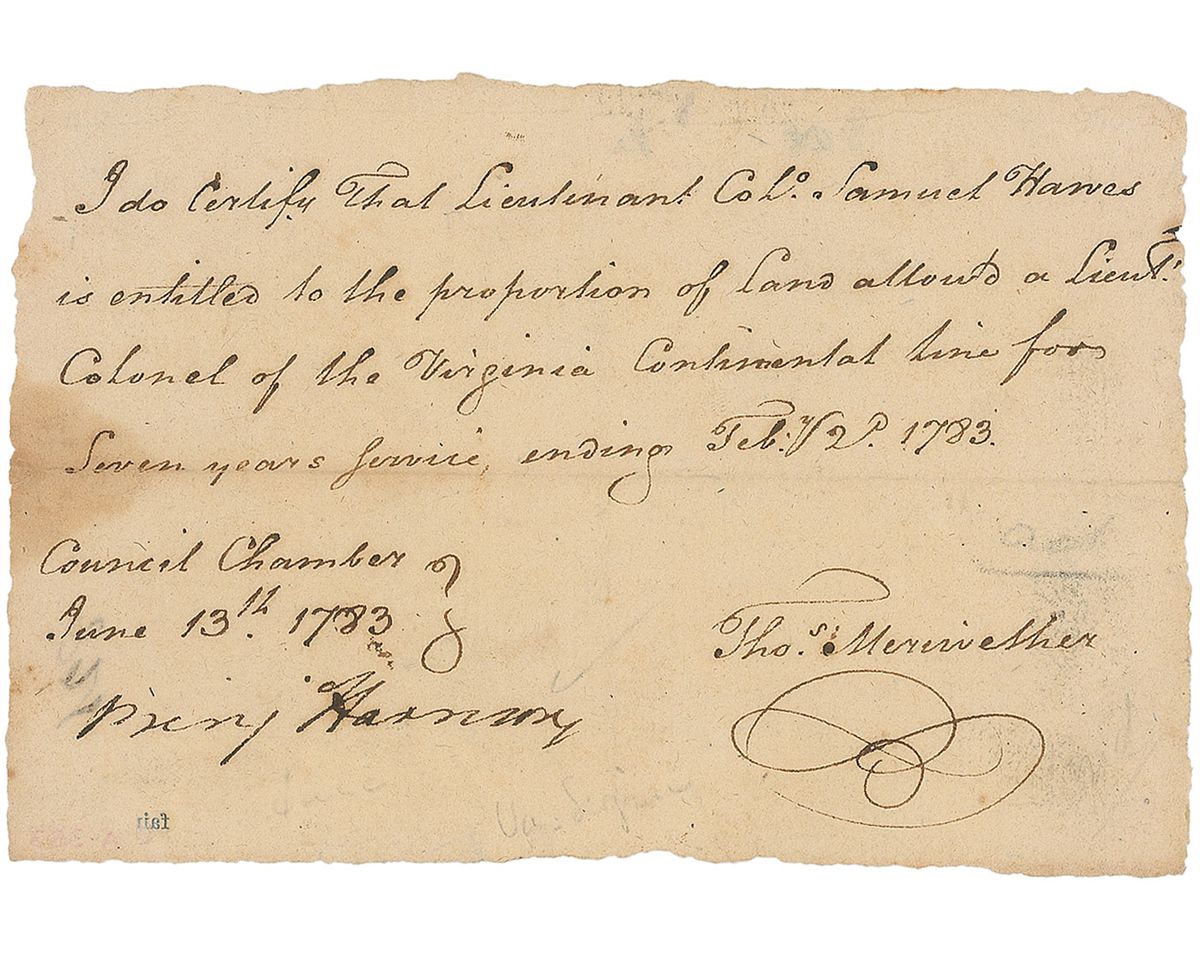 I do Certify That Lieutinant Colº. Samuel Hawes
is entitled to the proportion of Land allow'd a Lieut.
Colonel of the Virginia Continental line for
Seven years Service, ending Feb.y 2d. 1783.
Council Chamber
June 13th. 1783
Thos. Meriwether
Benj Harrison
fair